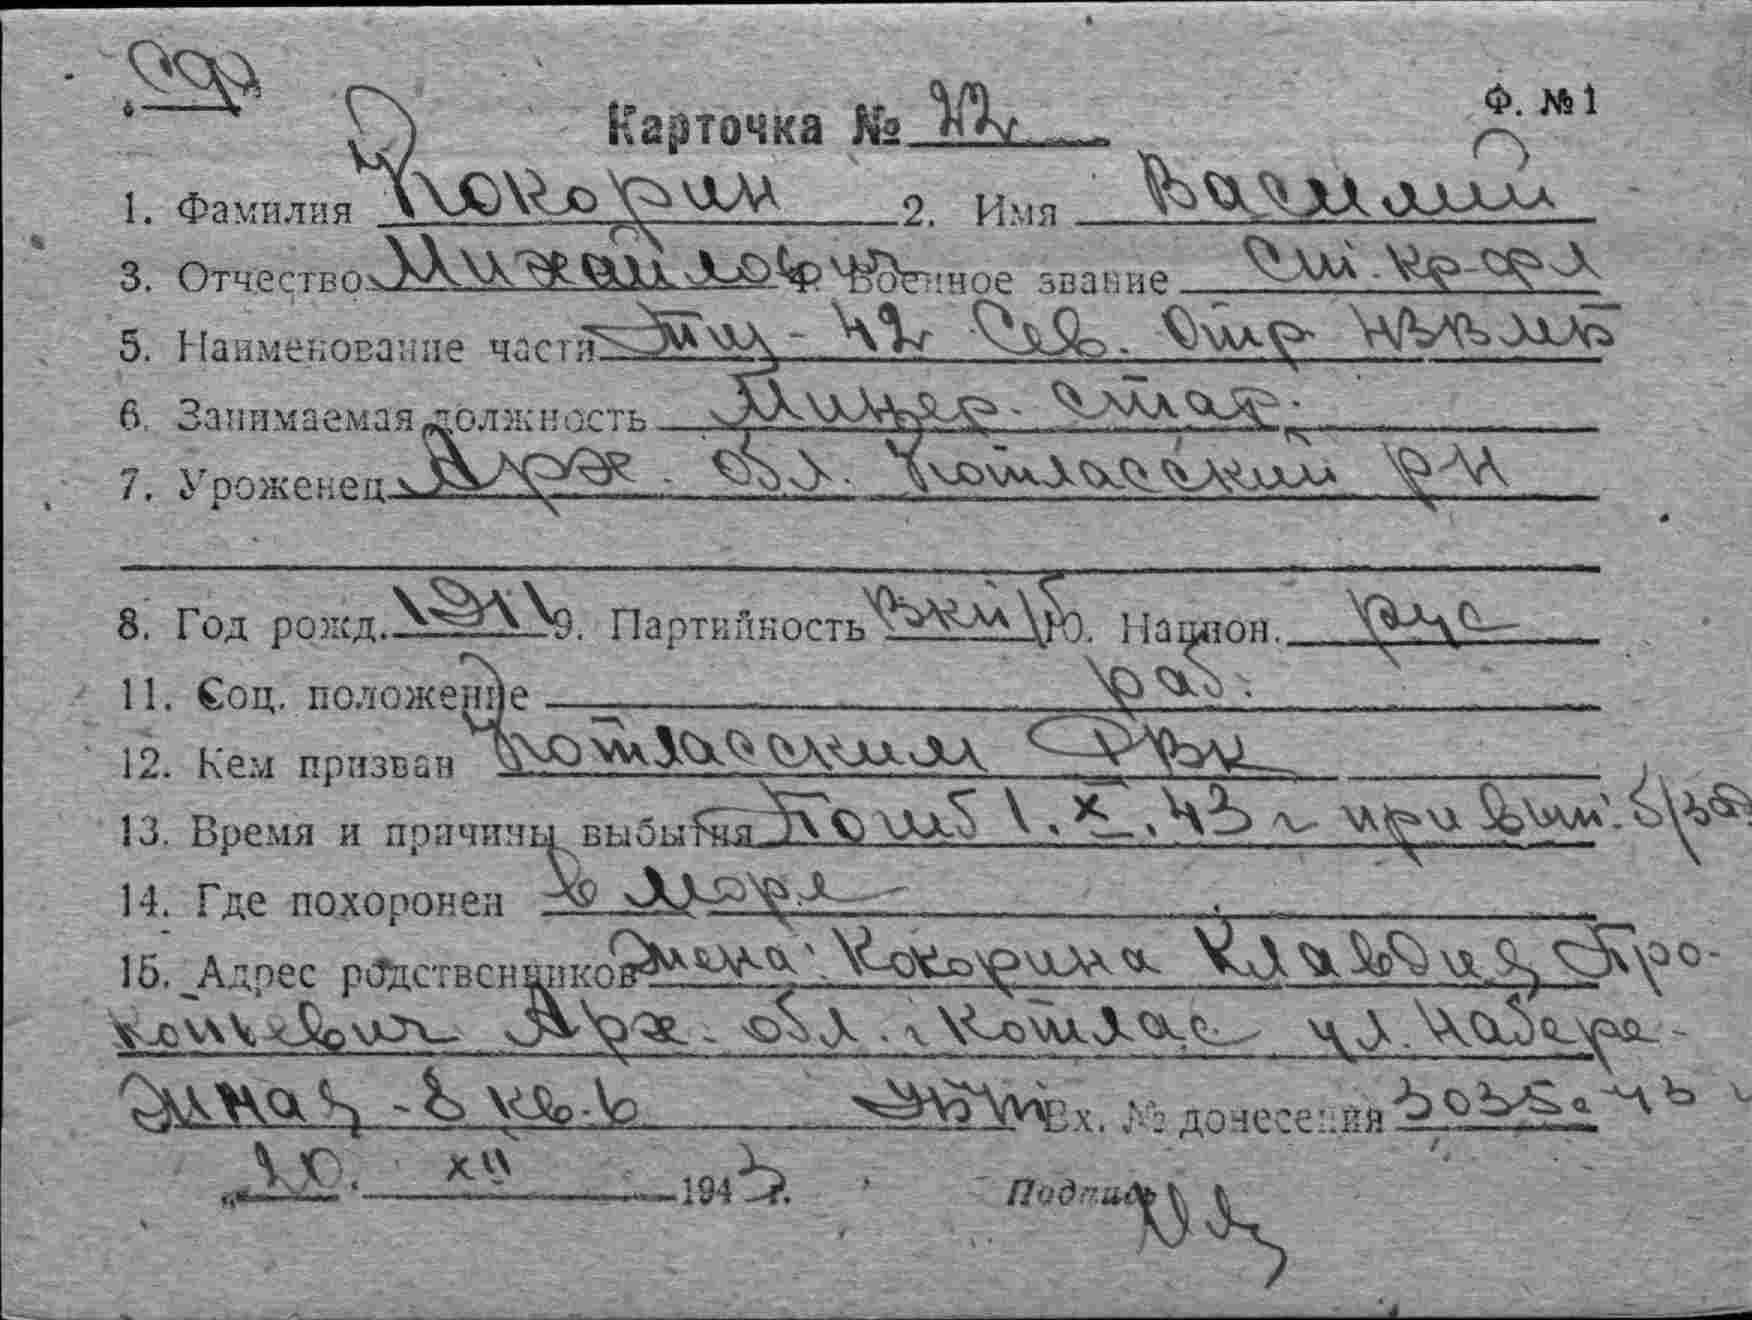 сф
Карточка № 22 Ф. №1
1. Фамилия Кокорин 2. Имя Василий
3. Отчество Михайлович 4. Военное звание Ст. кр-фл
5. Наименование части ТЩ-42 Сев. Отр
6. Занимаемая должность Минер. стар.
7. Уроженец Арх. обл. Котласский р-н
8. Год рожд. 1911 9. Партийность ВКП/б 10. Национ. рус
11. Соц. положение раб.
12. Кем призван Котласским РВК
13. Время и причины выбытия Погиб 1.X.43 г при вып. б/зад
14. Где похоронен в море
15. Адрес родственников жена: Кокорина Клавдия Про-
копьевич Арх. обл. г Котлас ул. Набере-
жная-8 кв. 6 Вх. № донесения 3035с 43
„20. XII 1943 г. Подпись